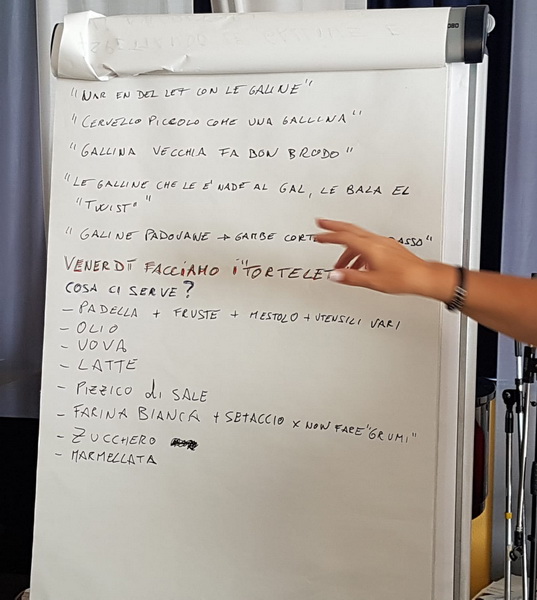 "NAR EN DEL LET CON LE GALINE"
"CERVELLO PICCOLO COME UNA GALLINA"
"GALLINA VECCHIA FA BON BRODO"
"LE GALLINE CHE LE E' NADE AL GAL, LE BALA EL
"TWIST" "
"GALINE PADOVANE → GAMBE CORT ASSO"
VENERDÌ FACCIAMO i "TORTELET
COSA CI SERVE?
- PADELLA + FRUSTE + MESTOLO + UTENSILI VARI
- OLIO
- UOVA
- LATTE
- PIZZICO di SALE
- FARINA BIANCA + SETACCIO x NON FARE "GRUMI"
- ZUCCHERO
- MARMELLATA